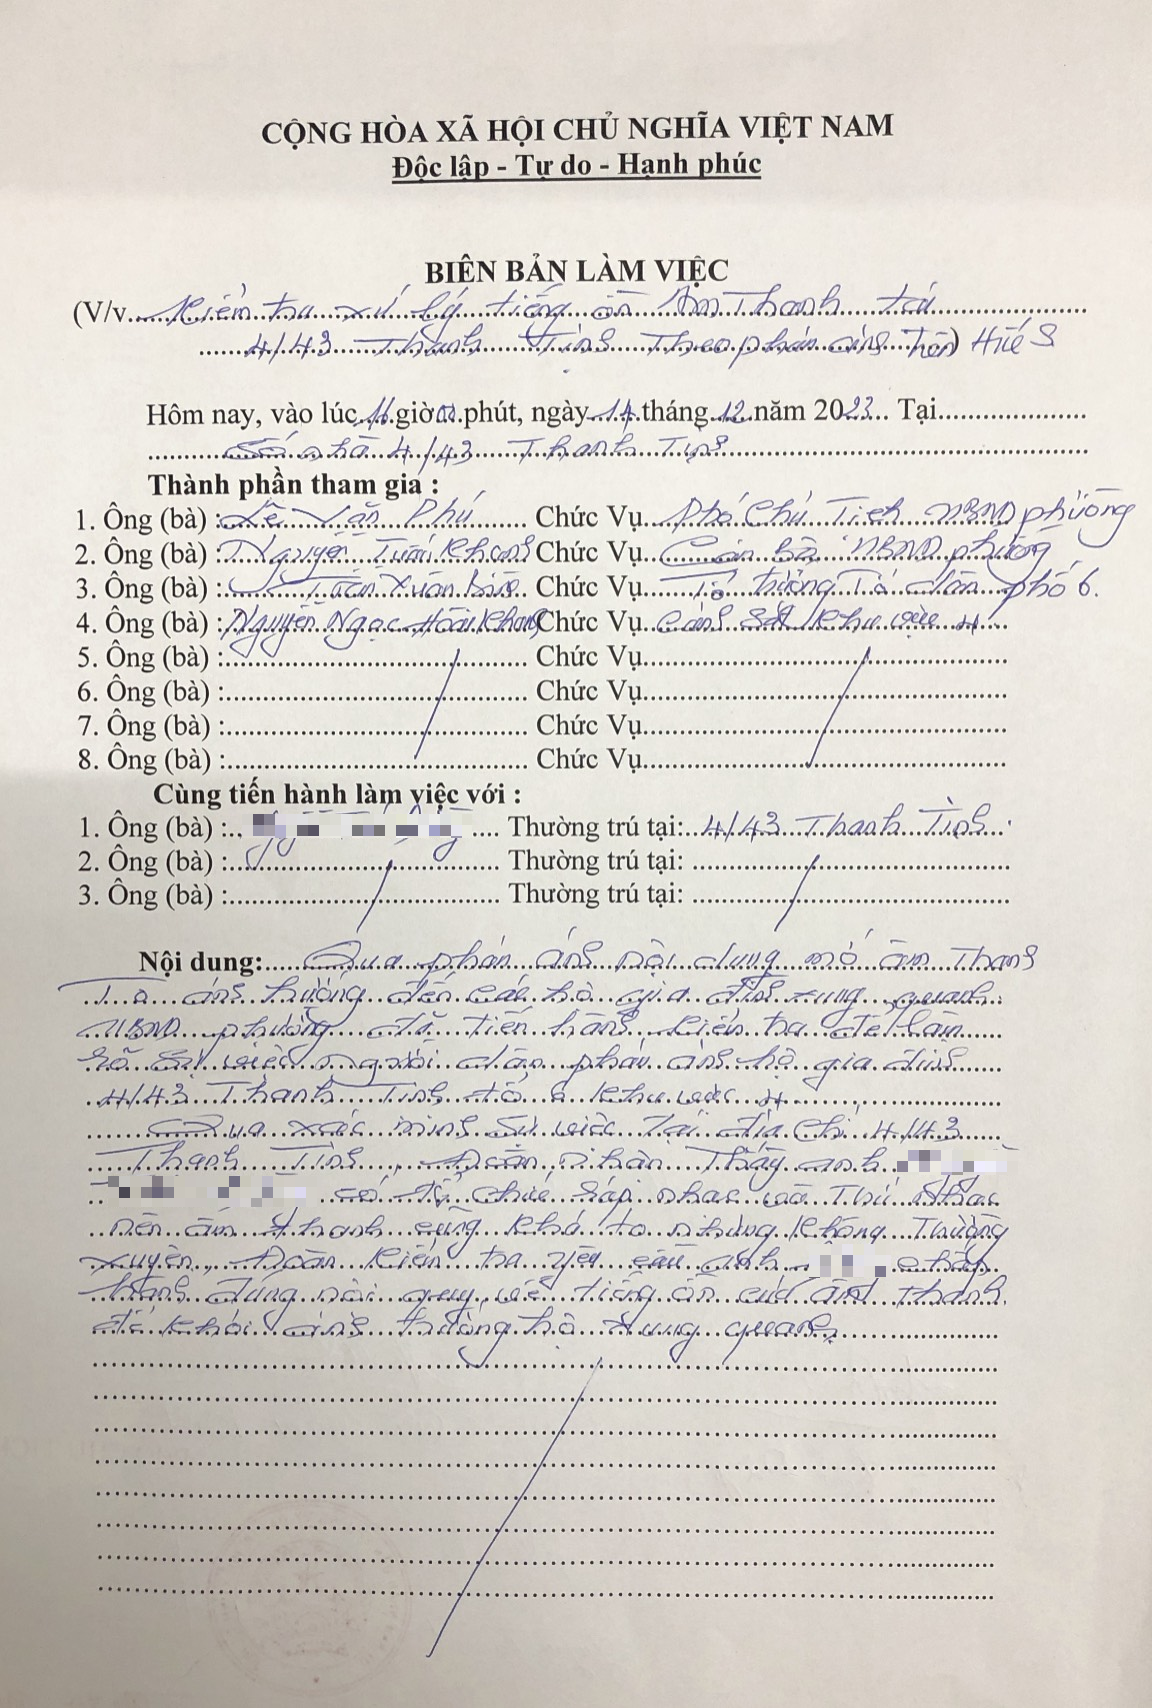 CỘNG HÒA XÃ HỘI CHỦ NGHĨA VIỆT NAM
Độc lập - Tự do - Hạnh phúc
BIÊN BẢN LÀM VIỆC
(V/v Kiểm tra xử lý tiếng ồn Âm Thanh tại
4/43 Thanh Tịnh Theo phản ánh Trên) Huế S
Hôm nay, vào lúc 16 giờ 00 phút, ngày 14 tháng 12 năm 2023 Tại
Số nhà 4/43 Thanh Tịnh
Thành phần tham gia :
1. Ông (bà) : Lê Văn Phú Chức Vụ Phó Chủ Tịch UBND phường
2. Ông (bà) : Nguyễn Tuấn Khanh Chức Vụ Cán bộ UBND phường
3. Ông (bà) : Trần Xuân Chức Vụ Tổ trưởng Tổ dân phố 6.
4. Ông (bà) : Nguyễn Ngọc Hoài Khang Chức Vụ Cảnh sát khu vực 4
5. Ông (bà) : Chức Vụ
6. Ông (bà) : Chức Vụ
7. Ông (bà) : Chức Vụ
8. Ông (bà) : Chức Vụ
Cùng tiến hành làm việc với :
1. Ông (bà) : Thường trú tại: 4/43 Thanh Tịnh
2. Ông (bà) : Thường trú tại:
3. Ông (bà) : Thường trú tại:
Nội dung: Qua phản ánh nội dung mở âm Thanh
To ảnh hưởng đến các hộ gia đình xung quanh
UBND phường đã tiến hành kiểm tra để làm
rõ sự việc người dân phản ánh hộ gia đình
4/43 Thanh Tịnh tổ 6 khu vực 4
Qua xác minh sự việc Tại địa chỉ 4/43
Thanh Tịnh, Đoàn nhận Thấy anh
có tổ chức ráp nhạc và Thử nhạc
nên âm thanh cũng khá to nhưng không Thường
xuyên, Đoàn kiểm tra yêu cầu anh chấp
hành đúng nội quy về tiếng ồn của âm thanh
để khỏi ảnh hưởng hộ xung quanh